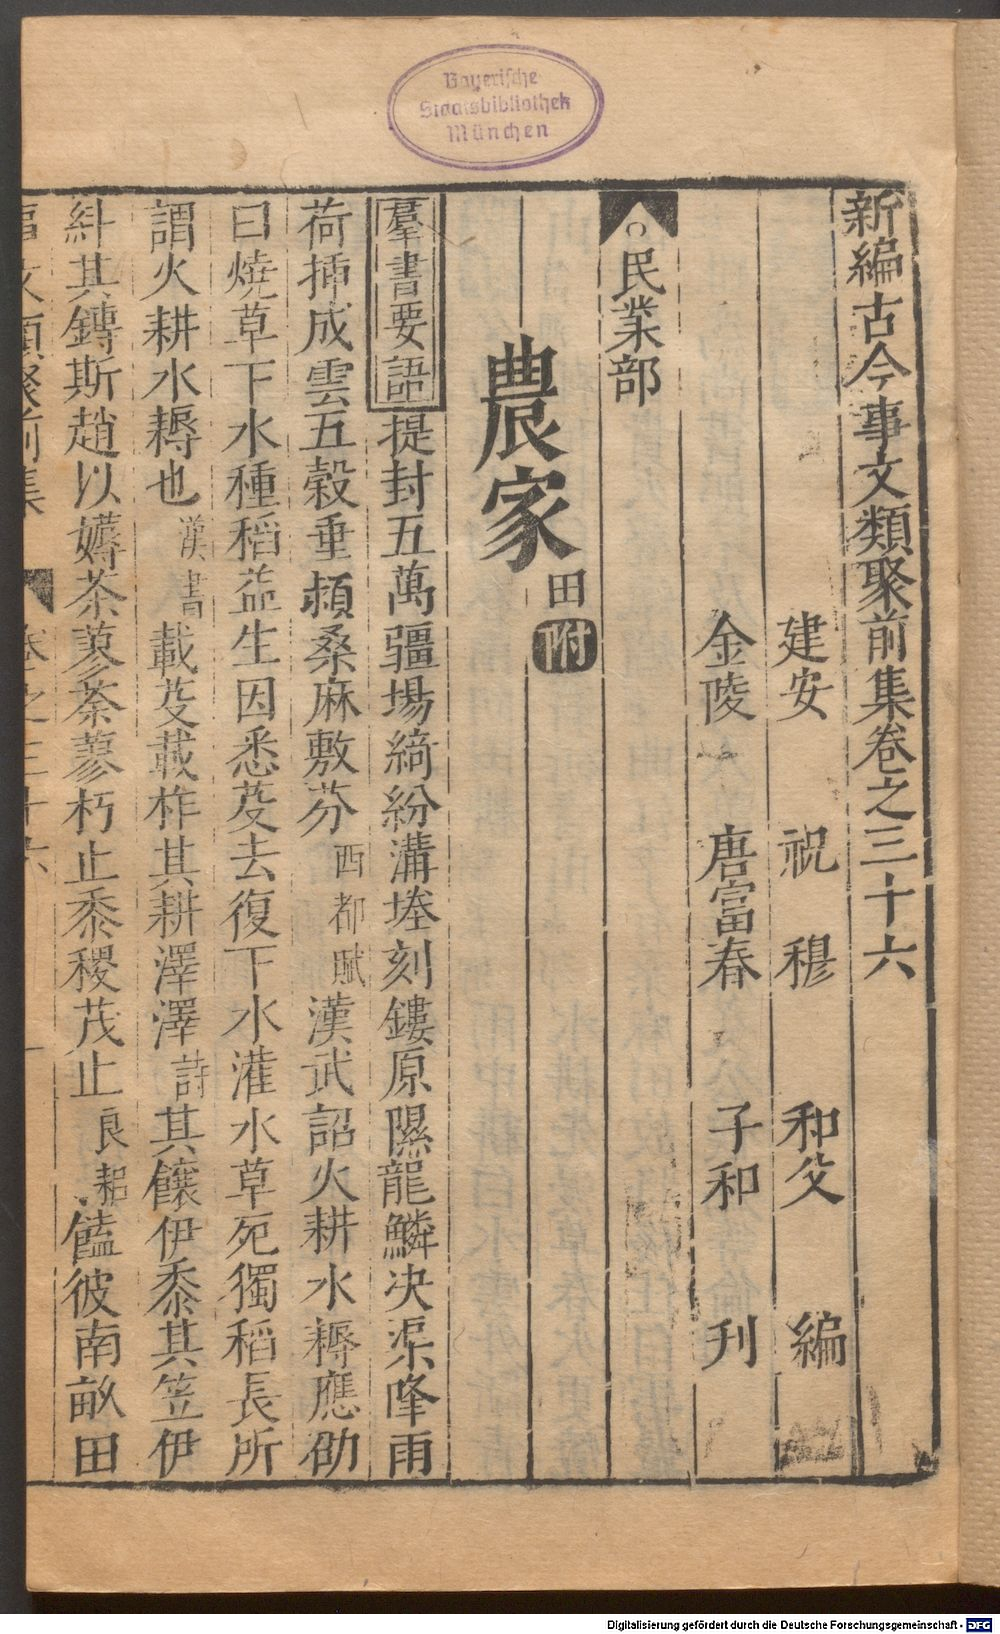 Bayerische
Staatsbibliothek
München
新編古今事文類聚前集卷之三十六
建安 祝 穆 和父 編
金陵 唐富春 子和 刊
○民業部
農家 田附
羣書要語 提封五萬疆場綺紛溝塍刻鏤原隰龍鱗决渠降雨
荷揷成雲五穀垂頴桑麻敷芬西都賦漢武詔火耕水耨應劭
曰燒草下水種稻益生因悉芟去復下水灌水草死獨稻長所
謂火耕水耨也漢書載芟載柞其耕澤澤詩其饟伊黍其笠伊
糾其鎛斯趙以薅荼蓼荼蓼朽止黍稷茂止良耜饁彼南畝田
事文類聚前集 卷之三十六 一
Digitalisierung gefördert durch die Deutsche Forschungsgemeinschaft - DFG